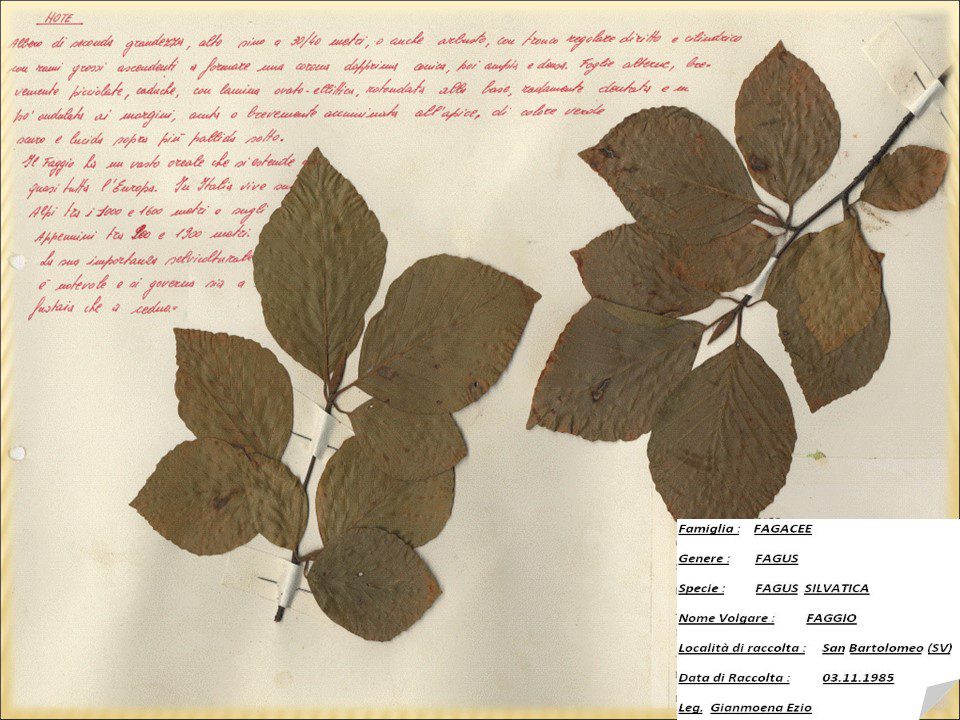 NOTE
Albero di seconda grandezza, alto sino a 30/40 metri, o anche arbusto, con tronco regolare diritto e cilindrico
con rami grossi ascendenti a formare una corona dapprima conica, poi ampia e densa. Foglie alterne, bre-
vemente picciolate, caduche, con lamina ovato-ellittica, rotondata alla base, radamente dentata e un
po' ondulata ai margini, acuta o brevemente acuminata all'apice, di colore verde
scuro e lucida sopra più pallida sotto.
Il Faggio ha un vasto areale che si estende
quasi tutta l'Europa. In Italia vive su
Alpi tra i 1000 e 1600 metri e sugli
Appennini tra e 1900 metri.
La sua importanza selvicolturale
è notevole e si governa sia a
fustaia che a ceduo-
Famiglia : FAGACEE
Genere : FAGUS
Specie : FAGUS SILVATICA
Nome Volgare : FAGGIO
Località di raccolta : San Bartolomeo (SV)
Data di Raccolta : 03.11.1985
Leg. Gianmoena Ezio